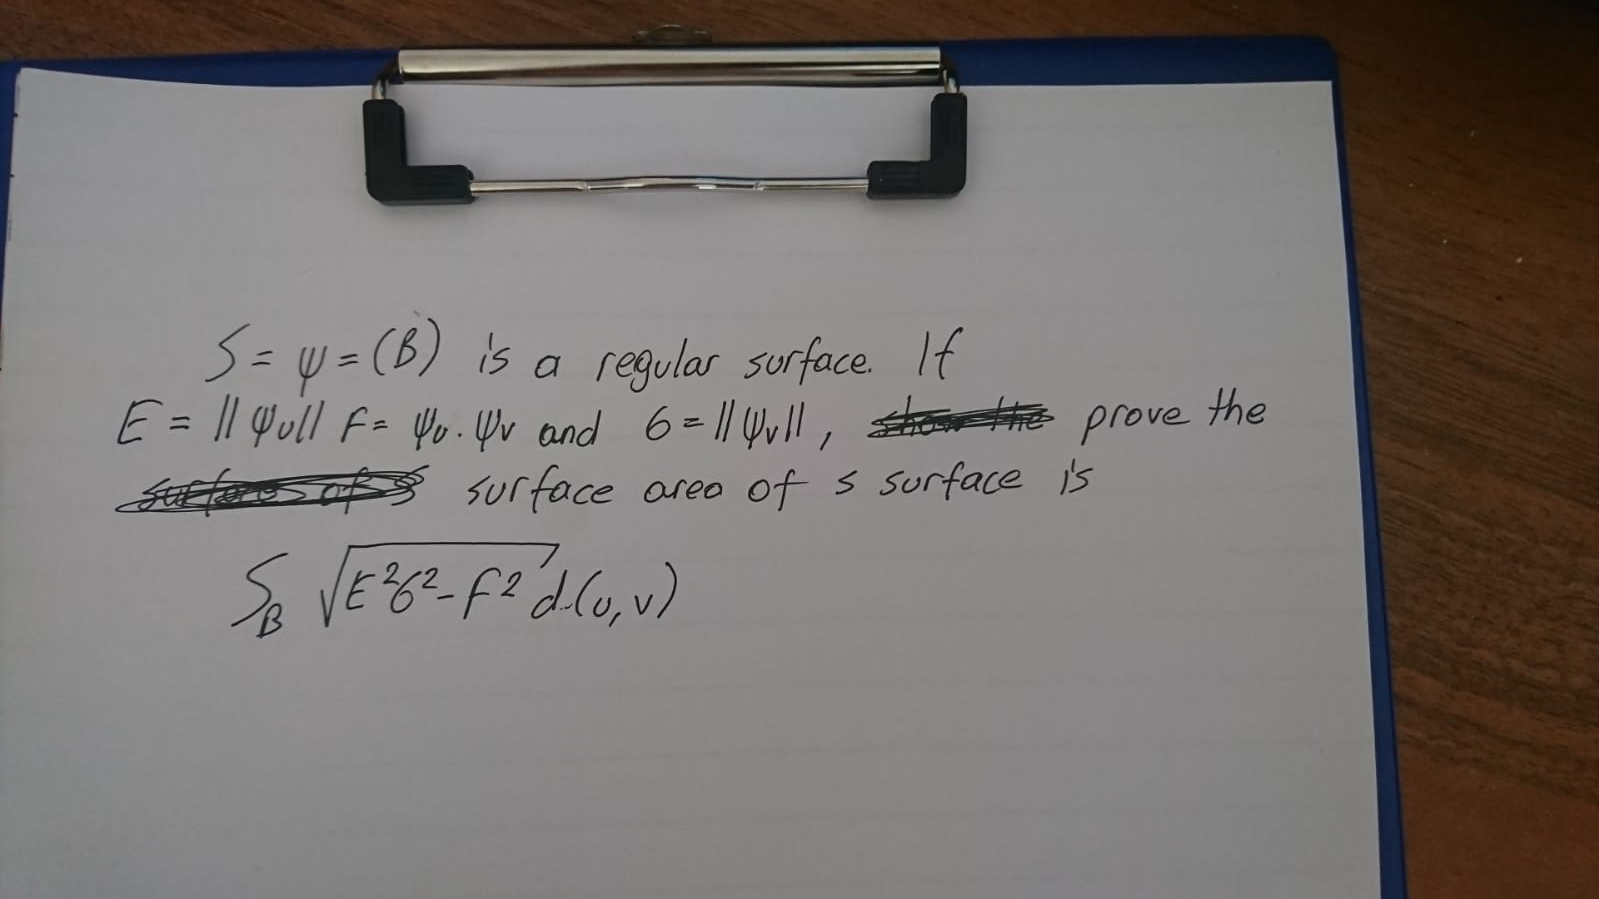 S = ψ = (B) is a regular surface. If
E = ||ψu|| F = ψu . ψv and G = ||ψv||, prove the
surface area of s surface is
∫B √E²G² - F² d(u, v)